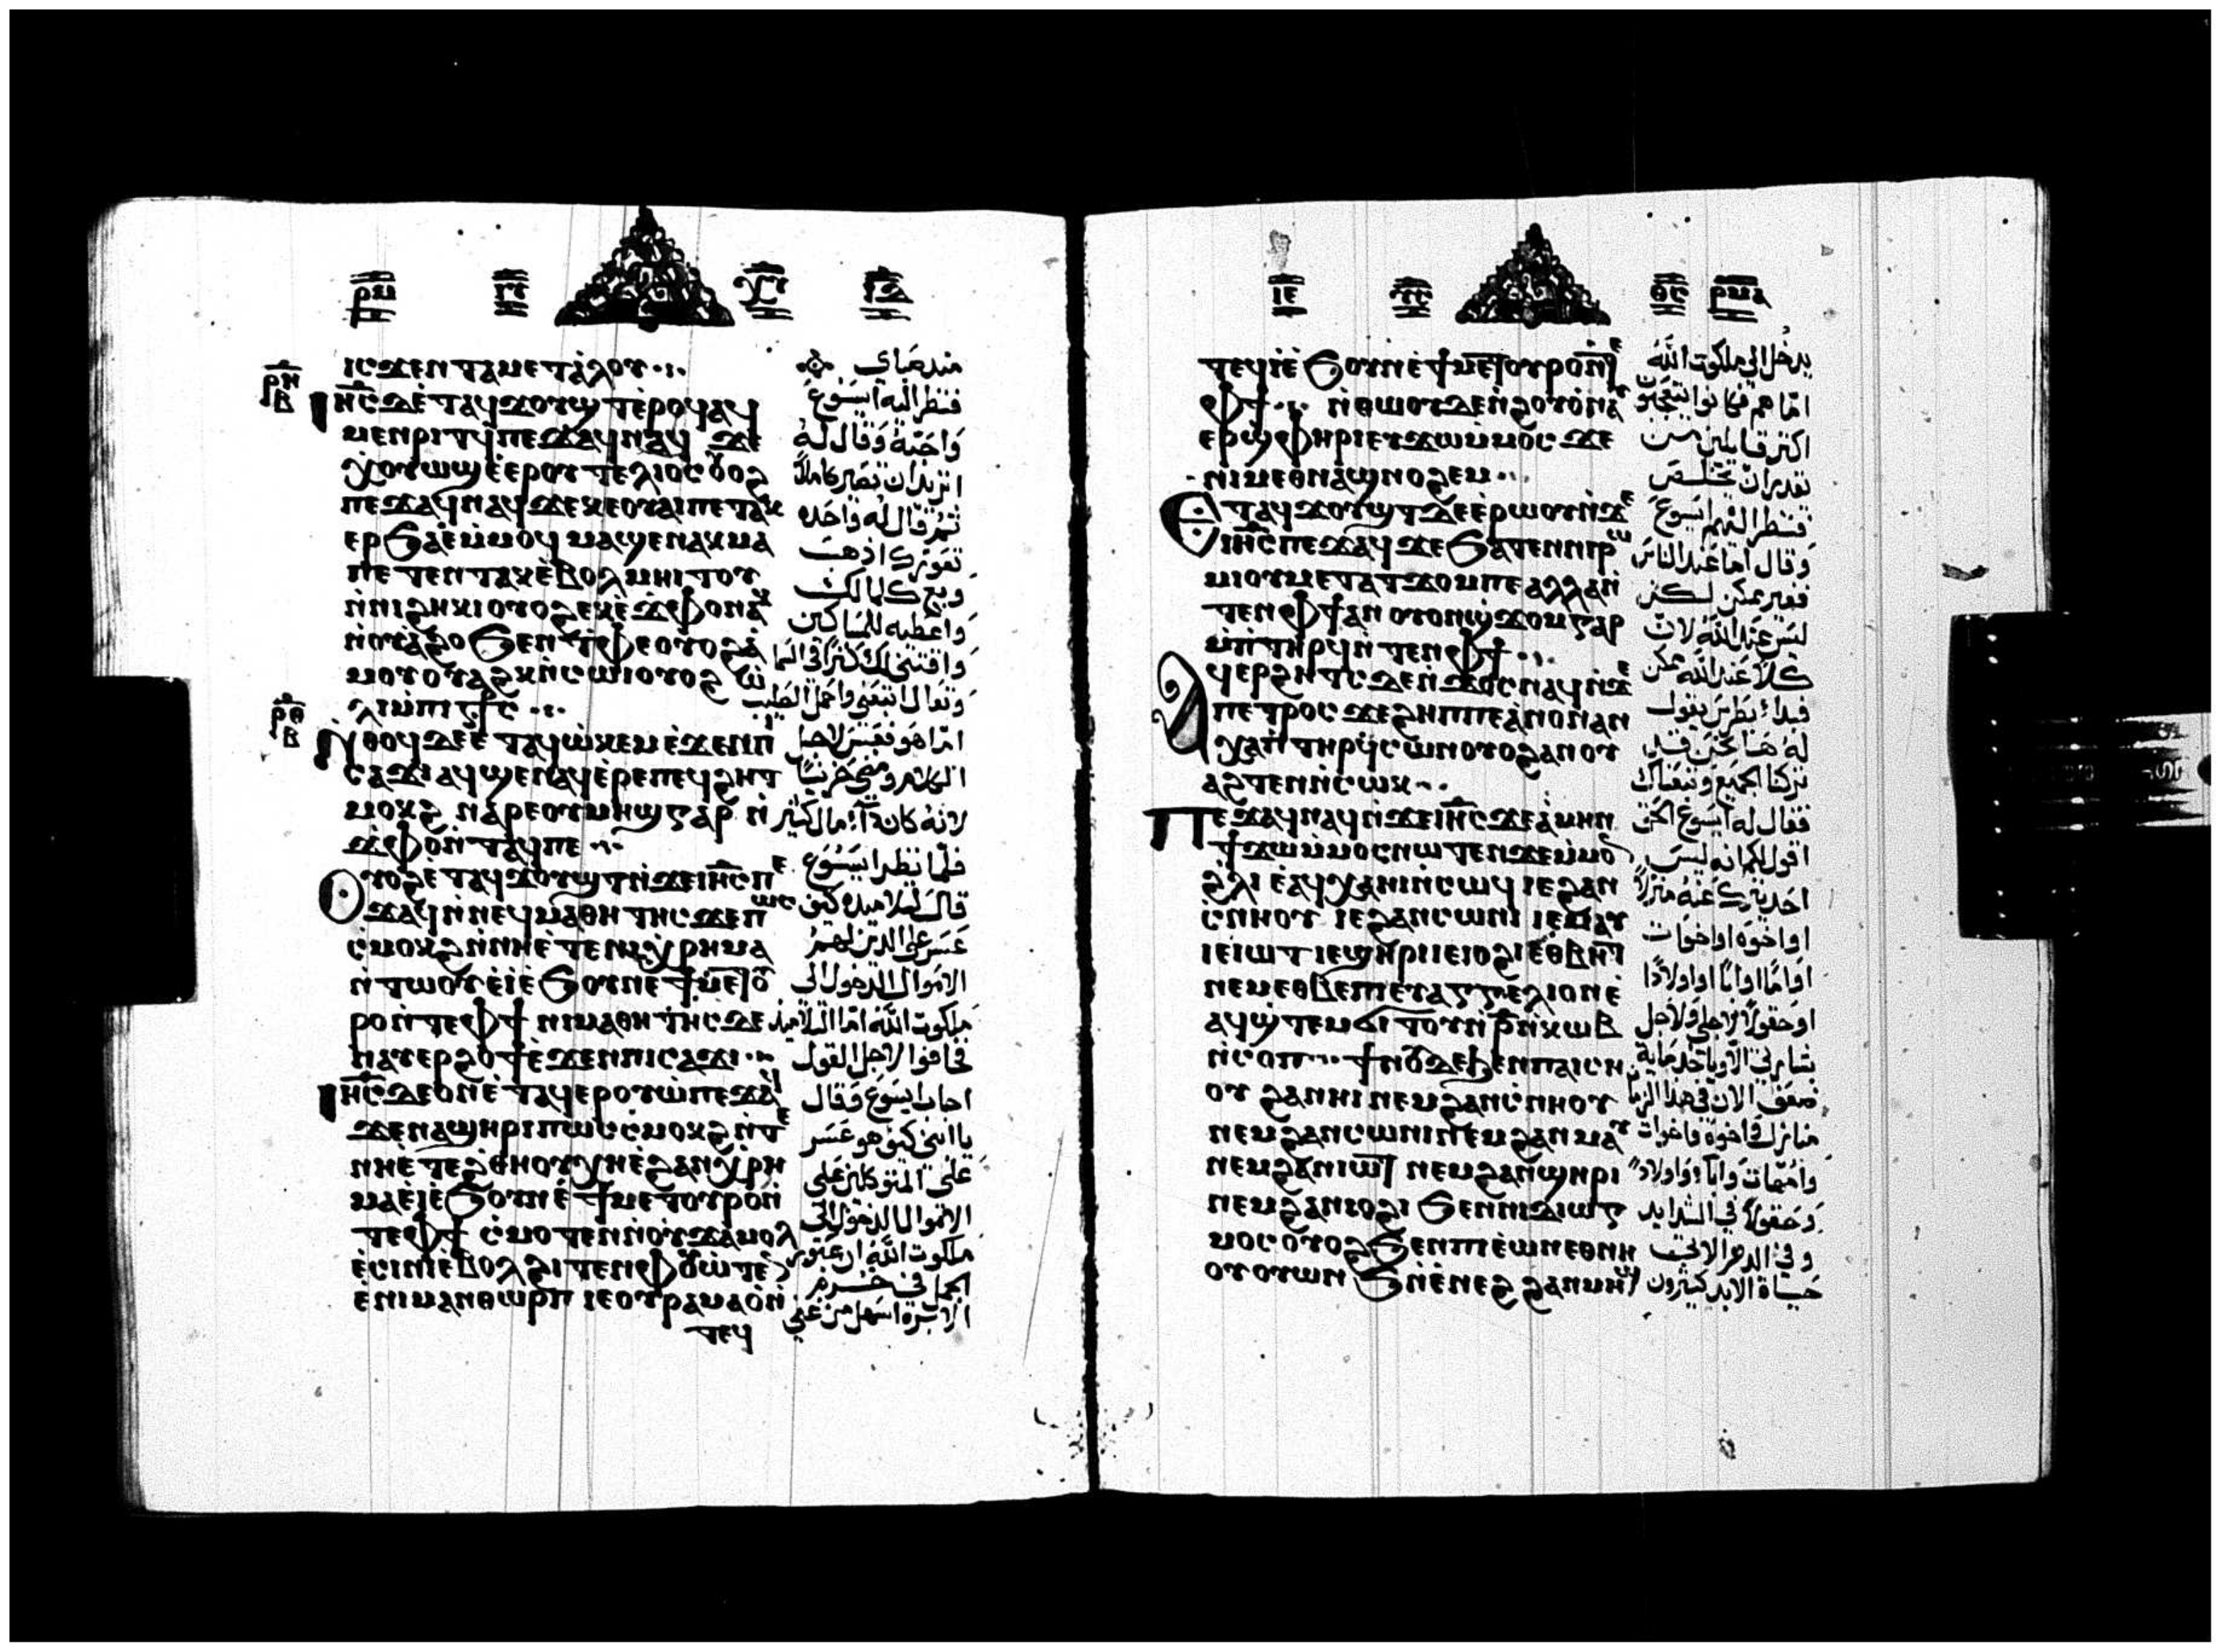 ⲣⲙ
ⲓⲥϫⲉⲛ ⲧⲁⲙⲉⲧⲁⲗⲟⲩ
ⲣⲏ
ⲃ
ⲓⲏⲥ ⲇⲉ ⲉⲧⲁϥϫⲟⲩϣⲧ ⲉⲣⲟϥ ⲁϥ
ⲙⲉⲛⲣⲓⲧϥ ⲡⲉϫⲁϥ ⲛⲁϥ ϫⲉ
ⲭⲟⲩⲱϣ ⲉⲉⲣⲟⲩⲧⲉⲗⲓⲟⲥ
ⲡⲉϫⲁϥ ⲛⲁϥ ϫⲉ ⲕⲉⲟⲩⲁⲓ ⲡⲉⲧⲁⲕ
ⲉⲣϧⲁⲉ ⲙⲙⲟϥ ⲙⲁϣⲉⲛⲁⲕ ⲙⲁ
ⲡⲉⲧⲉⲛⲧⲁⲕ ⲉⲃⲟⲗ ⲙⲏⲓⲧⲟⲩ
ⲛⲛⲓϩⲏⲕⲓ ⲟⲩⲟϩ ⲉⲕⲉϫⲫⲟ ⲛⲁⲕ
ⲛⲟⲩⲁϩⲟ ϧⲉⲛ ⲧⲫⲉ ⲟⲩⲟϩ ⲁ
ⲙⲟⲩ ⲟⲩⲁϩⲕ ⲛⲥⲱⲓ ⲟⲩⲟϩ ⲱ
ⲗⲓ ⲙⲡⲓ
ⲣⲑ
ⲃ
ⲛⲑⲟϥ ⲇⲉ ⲉⲧⲁϥⲱⲕⲉⲙ ⲉϫⲉⲛ ⲡⲓ
ⲥⲁϫⲓ ⲁϥϣⲉⲛⲁϥ ⲉⲣⲉ ⲡⲉϥϩⲏⲧ
ⲙⲟⲕϩ ⲛⲁⲣⲉ ⲟⲩⲙⲏϣ ⲅⲁⲣ ⲛ
ϫⲫⲟ ⲛⲧⲁϥ ⲡⲉ
ⲟⲩⲟϩ ⲉⲧⲁϥϫⲟⲩϣⲧ ⲛϫⲉ ⲓⲏⲥ ⲡⲉ
ϫⲁϥ ⲛⲛⲉϥⲙⲁⲑⲏⲧⲏⲥ ϫⲉ ⲡⲱⲥ
ⲥⲙⲟⲕϩ ⲛⲛⲏ ⲉⲧⲉ ⲛⲓⲭⲣⲏⲙⲁ
ⲛⲧⲱⲟⲩ ⲉⲓ ⲉϧⲟⲩⲛ ⲉϯⲙⲉⲧⲟⲩ
ⲣⲟ ⲛⲧⲉ ⲫϯ ⲛⲓⲙⲁⲑⲏⲧⲏⲥ ⲇⲉ
ⲛⲁⲩⲉⲣϩⲟϯ ⲉϫⲉⲛ ⲡⲓⲥⲁϫⲓ
ⲓⲏⲥ ⲇⲉ ⲟⲛ ⲉⲧⲁϥⲉⲣⲟⲩⲱ ⲡⲉϫⲁϥ
ϫⲉ ⲛⲁϣⲏⲣⲓ ⲡⲱⲥ ⲥⲙⲟⲕϩ ⲛⲧⲉ
ⲛⲏ ⲉⲧⲉ ϩⲑⲏⲟⲩ ⲭⲏ ⲉϩⲁⲛⲭⲣⲏ
ⲙⲁ ⲉⲓ ⲉϧⲟⲩⲛ ⲉϯⲙⲉⲧⲟⲩⲣⲟ ⲛ
ⲧⲉ ⲫϯ ⲥⲙⲟⲧⲉⲛ ⲛⲟⲩϫⲁⲙⲟⲗ
ⲉⲥⲓⲛⲓ ⲉⲃⲟⲗ ϩⲓⲧⲉⲛ ⲑⲟⲩⲱⲧⲉⲛ
ⲉⲛⲓⲙⲁⲛⲑⲱⲣⲡ ⲓⲉ ⲟⲩⲣⲁⲙⲁⲟ ⲛ
ⲧⲉϥ
منذ صباي
فنظر اليه ايسوع
واحبه وقال له
اتريد ان تصير كاملاً
ثم قال له واحده
تعوزك اذهب
وبع كلما لك
واعطيه للمساكين
واقتني لك كنزاً في السما
وتعال اتبعني واحمل الصليب
امّا هو فعبس لاجل
الكلام ومضي حزيناً
لانه كان ذا مال كثير
فلمّا نظر ايسوع
قال لتلاميذه كيف
عسر علي الذين لهم
الاموال الدخول الي
ملكوت الله امّا التلاميذ
فخافوا لاجل القول
اجاب ايسوع وقال
يا ابني كيف هو عسر
علي المتوكلين علي
الاموال الدخول الي
ملكوت الله ان عبور
الجمل في خرم
الابرة اسهل من غني
ⲓⲉ
ⲣⲙⲁ
ⲧⲉϥⲓ ⲉϧⲟⲩⲛ ⲉϯⲙⲉⲧⲟⲩⲣⲟ ⲛⲧⲉ
ⲫϯ ⲛⲑⲱⲟⲩ ⲇⲉ ⲛϩⲟⲩⲟ ⲛⲁⲩ
ⲉⲣϣⲫⲏⲣⲓ ⲉⲩϫⲱ ⲙⲙⲟⲥ ϫⲉ
ⲛⲓⲙ ⲉⲑⲛⲁϣⲛⲟϩⲉⲙ
ⲉⲧⲁϥϫⲟⲩϣⲧ ⲇⲉ ⲉⲣⲱⲟⲩ ⲛϫⲉ
ⲓⲏⲥ ⲡⲉϫⲁϥ ϫⲉ ϧⲁⲧⲉⲛ ⲛⲓⲣⲱ
ⲙⲓ ⲟⲩⲙⲉⲧⲁⲧϫⲟⲙ ⲡⲉ ⲁⲗⲗⲁ ⲛ
ⲧⲉⲛ ⲫϯ ⲁⲛ ⲟⲩⲟⲛϣϫⲟⲙ ⲅⲁⲣ
ⲛⲧⲏⲣϥ ⲛⲧⲉⲛ ⲫϯ
ⲁϥⲉⲣϩⲏⲧⲥ ⲛϫⲟⲥ ⲛⲁϥ ⲛϫⲉ
ⲡⲉⲧⲣⲟⲥ ϫⲉ ϩⲏⲡⲡⲉ ⲁⲛⲟⲛ ⲁⲛ
ⲭⲁ ⲛⲧⲏⲣϥ ⲥⲱⲛ ⲟⲩⲟϩ ⲁⲛⲟⲩ
ⲁϩⲧⲉⲛ ⲛⲥⲱⲕ
ⲡⲉϫⲁϥ ⲛⲁϥ ⲛϫⲉ ⲓⲏⲥ ϫⲉ ⲁⲙⲏⲛ
ϯϫⲱ ⲙⲙⲟⲥ ⲛⲱⲧⲉⲛ ϫⲉ ⲙⲙⲟⲛ
ϩⲗⲓ ⲉⲁϥⲭⲁ ⲏⲓ ⲛⲥⲱϥ ⲓⲉ ϩⲁⲛ
ⲥⲛⲏⲟⲩ ⲓⲉ ϩⲁⲛⲥⲱⲛⲓ ⲓⲉ ⲙⲁⲩ
ⲓⲉ ⲓⲱⲧ ⲓⲉ ϣⲏⲣⲓ ⲓⲉ ⲓⲟϩⲓ ⲉⲑⲃⲏⲧ
ⲛⲉⲙ ⲉⲑⲃⲉ ⲡⲓⲉⲩⲁⲅⲅⲉⲗⲓⲟⲛ ⲉ
ⲁϥϣⲧⲉⲙϭⲓⲧⲟⲩ ⲛⲣ ⲛⲕⲱⲃ
ⲛⲥⲟⲡ ϯⲛⲟⲩ ⲇⲉ ϧⲉⲛ ⲡⲁⲓⲥⲏ
ⲟⲩ ϩⲁⲛⲏⲓ ⲛⲉⲙ ϩⲁⲛⲥⲛⲏⲟⲩ
ⲛⲉⲙ ϩⲁⲛⲥⲱⲛⲓ ⲛⲉⲙ ϩⲁⲛⲙⲁⲩ
ⲛⲉⲙ ϩⲁⲛⲓⲱⲧ ⲛⲉⲙ ϩⲁⲛϣⲏⲣⲓ
ⲛⲉⲙ ϩⲁⲛⲓⲟϩⲓ ϧⲉⲛ ⲛⲓⲇⲓⲱⲅ
ⲙⲟⲥ ⲟⲩⲟϩ ϧⲉⲛ ⲡⲓⲉⲱⲛ ⲉⲑⲛⲏ
ⲟⲩ ⲟⲩⲱⲛϧ ⲛⲉⲛⲉϩ ϩⲁⲛⲙⲏϣ
يدخل الي ملكوت الله
امّا هم فكانوا يتعجبون
اكثر قايلين من
يقدر ان يخلص
فنظر اليهم ايسوع
وقال اما عند الناس
فغير ممكن لكن
ليس عند الله لان
كلاً عند الله ممكن
فبدا بطرس يقول
له ها نحن قد
تركنا الجميع وتبعناك
فقال له ايسوع الحق
اقول لكم انه ليس
احد يترك عنه منزلاً
او اخوه او اخوات
او امًا او ابًا او اولادًا
او حقولاً لاجلي ولاجل
بشارتي الّا وياخذ ماية
ضعف الان في هذا الزمان
منازل واخوه واخوات
وامهات واباء واولاد
وحقولاً في الشدايد
وفي الدهر الاتي
حياة الابد كثيرون